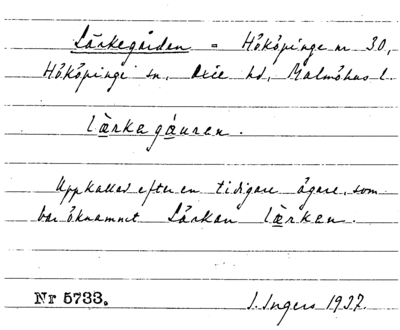 Lärkegården = Hököpinge nr 30,
Hököpinge sn, Oxie hd, Malmöhus l.
lærkagáuren.
Uppkallad efter en tidigare ägare, som
bar öknamnet Lärkan lærkan.
Nr 5733. I. Ingers 1937.